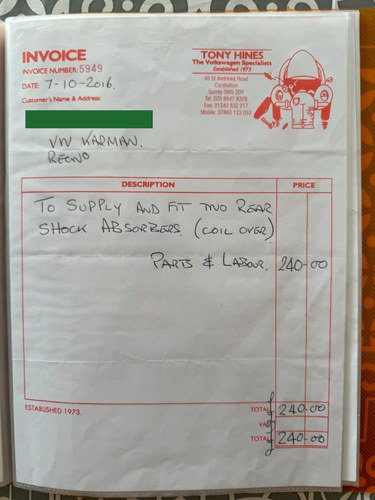 INVOICE
INVOICE NUMBER: 5949
DATE: 7-10-2016.
Customer's Name & Address
TONY HINES
The Volkswagen Specialists
Established 1973
48 St Andrews Road
Carshalton
Surrey SM5
Tel: 020 8647
Eve: 01342 850 317
Mobile: 07860
VW KARMAN.
REGNO
DESCRIPTION PRICE
TO SUPPLY AND FIT TWO REAR
SHOCK ABSORBERS (COIL OVER)
PARTS & LABOUR. 240-00
ESTABLISHED 1973. TOTAL £ 240-00
VAT
TOTAL £ 240-00